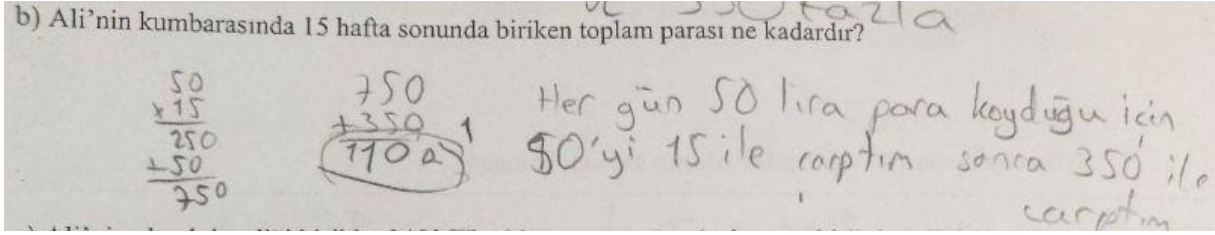 fazla
b) Ali'nin kumbarasında 15 hafta sonunda biriken toplam parası ne kadardır?
50
x 15
250
+ 50
750
750
+350
1100
Her gün 50 lira para koyduğu için
50'yi 15 ile carptım sonra 350 ile
carptım